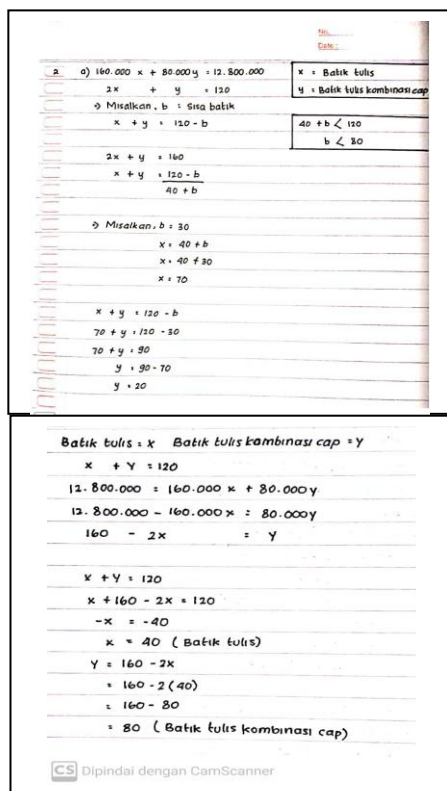 No.
Date :
2 a) 160.000 x + 80.000 y = 12.800.000
x = Batik tulis
2x + y = 120
y = Batik tulis kombinasi cap
→ Misalkan, b = Sisa batik
x + y = 120 - b
40 + b < 120
b < 80
2x + y = 160
x + y = 120 - b
40 + b
→ Misalkan, b = 30
x = 40 + b
x = 40 + 30
x = 70
x + y = 120 - b
70 + y = 120 - 30
70 + y = 90
y = 90 - 70
y = 20
Batik tulis = x Batik tulis kombinasi cap = y
x + y = 120
12.800.000 = 160.000 x + 80.000y
12.800.000 - 160.000 x = 80.000y
160 - 2x = y
x + y = 120
x + 160 - 2x = 120
-x = -40
x = 40 ( Batik tulis)
y = 160 - 2x
= 160 - 2(40)
= 160 - 80
= 80 ( Batik tulis kombinasi cap)
CS Dipindai dengan CamScanner